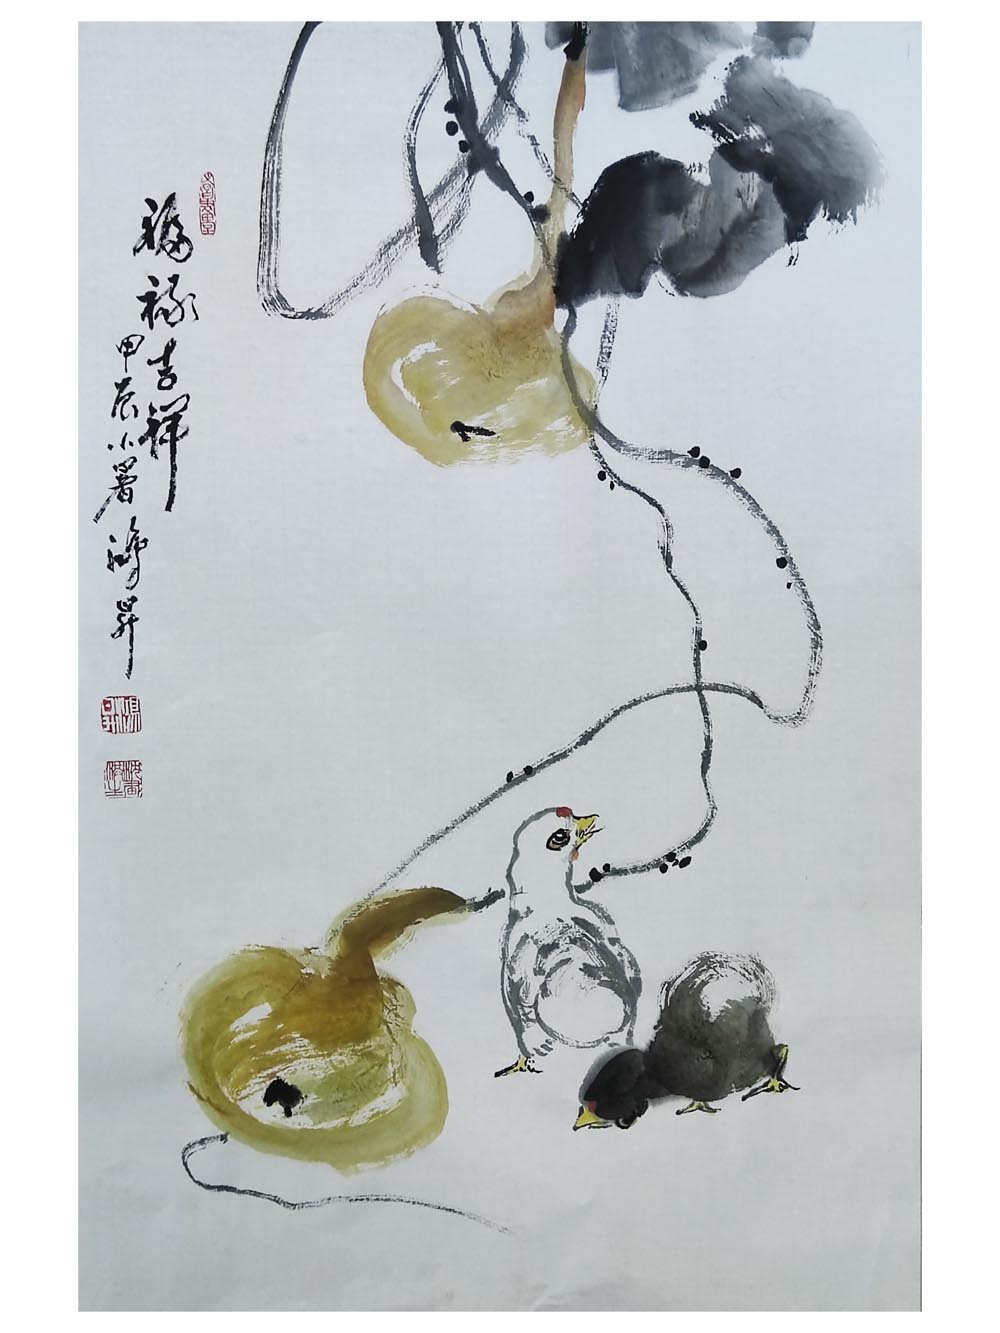 福禄吉祥
甲辰小暑鸿昇